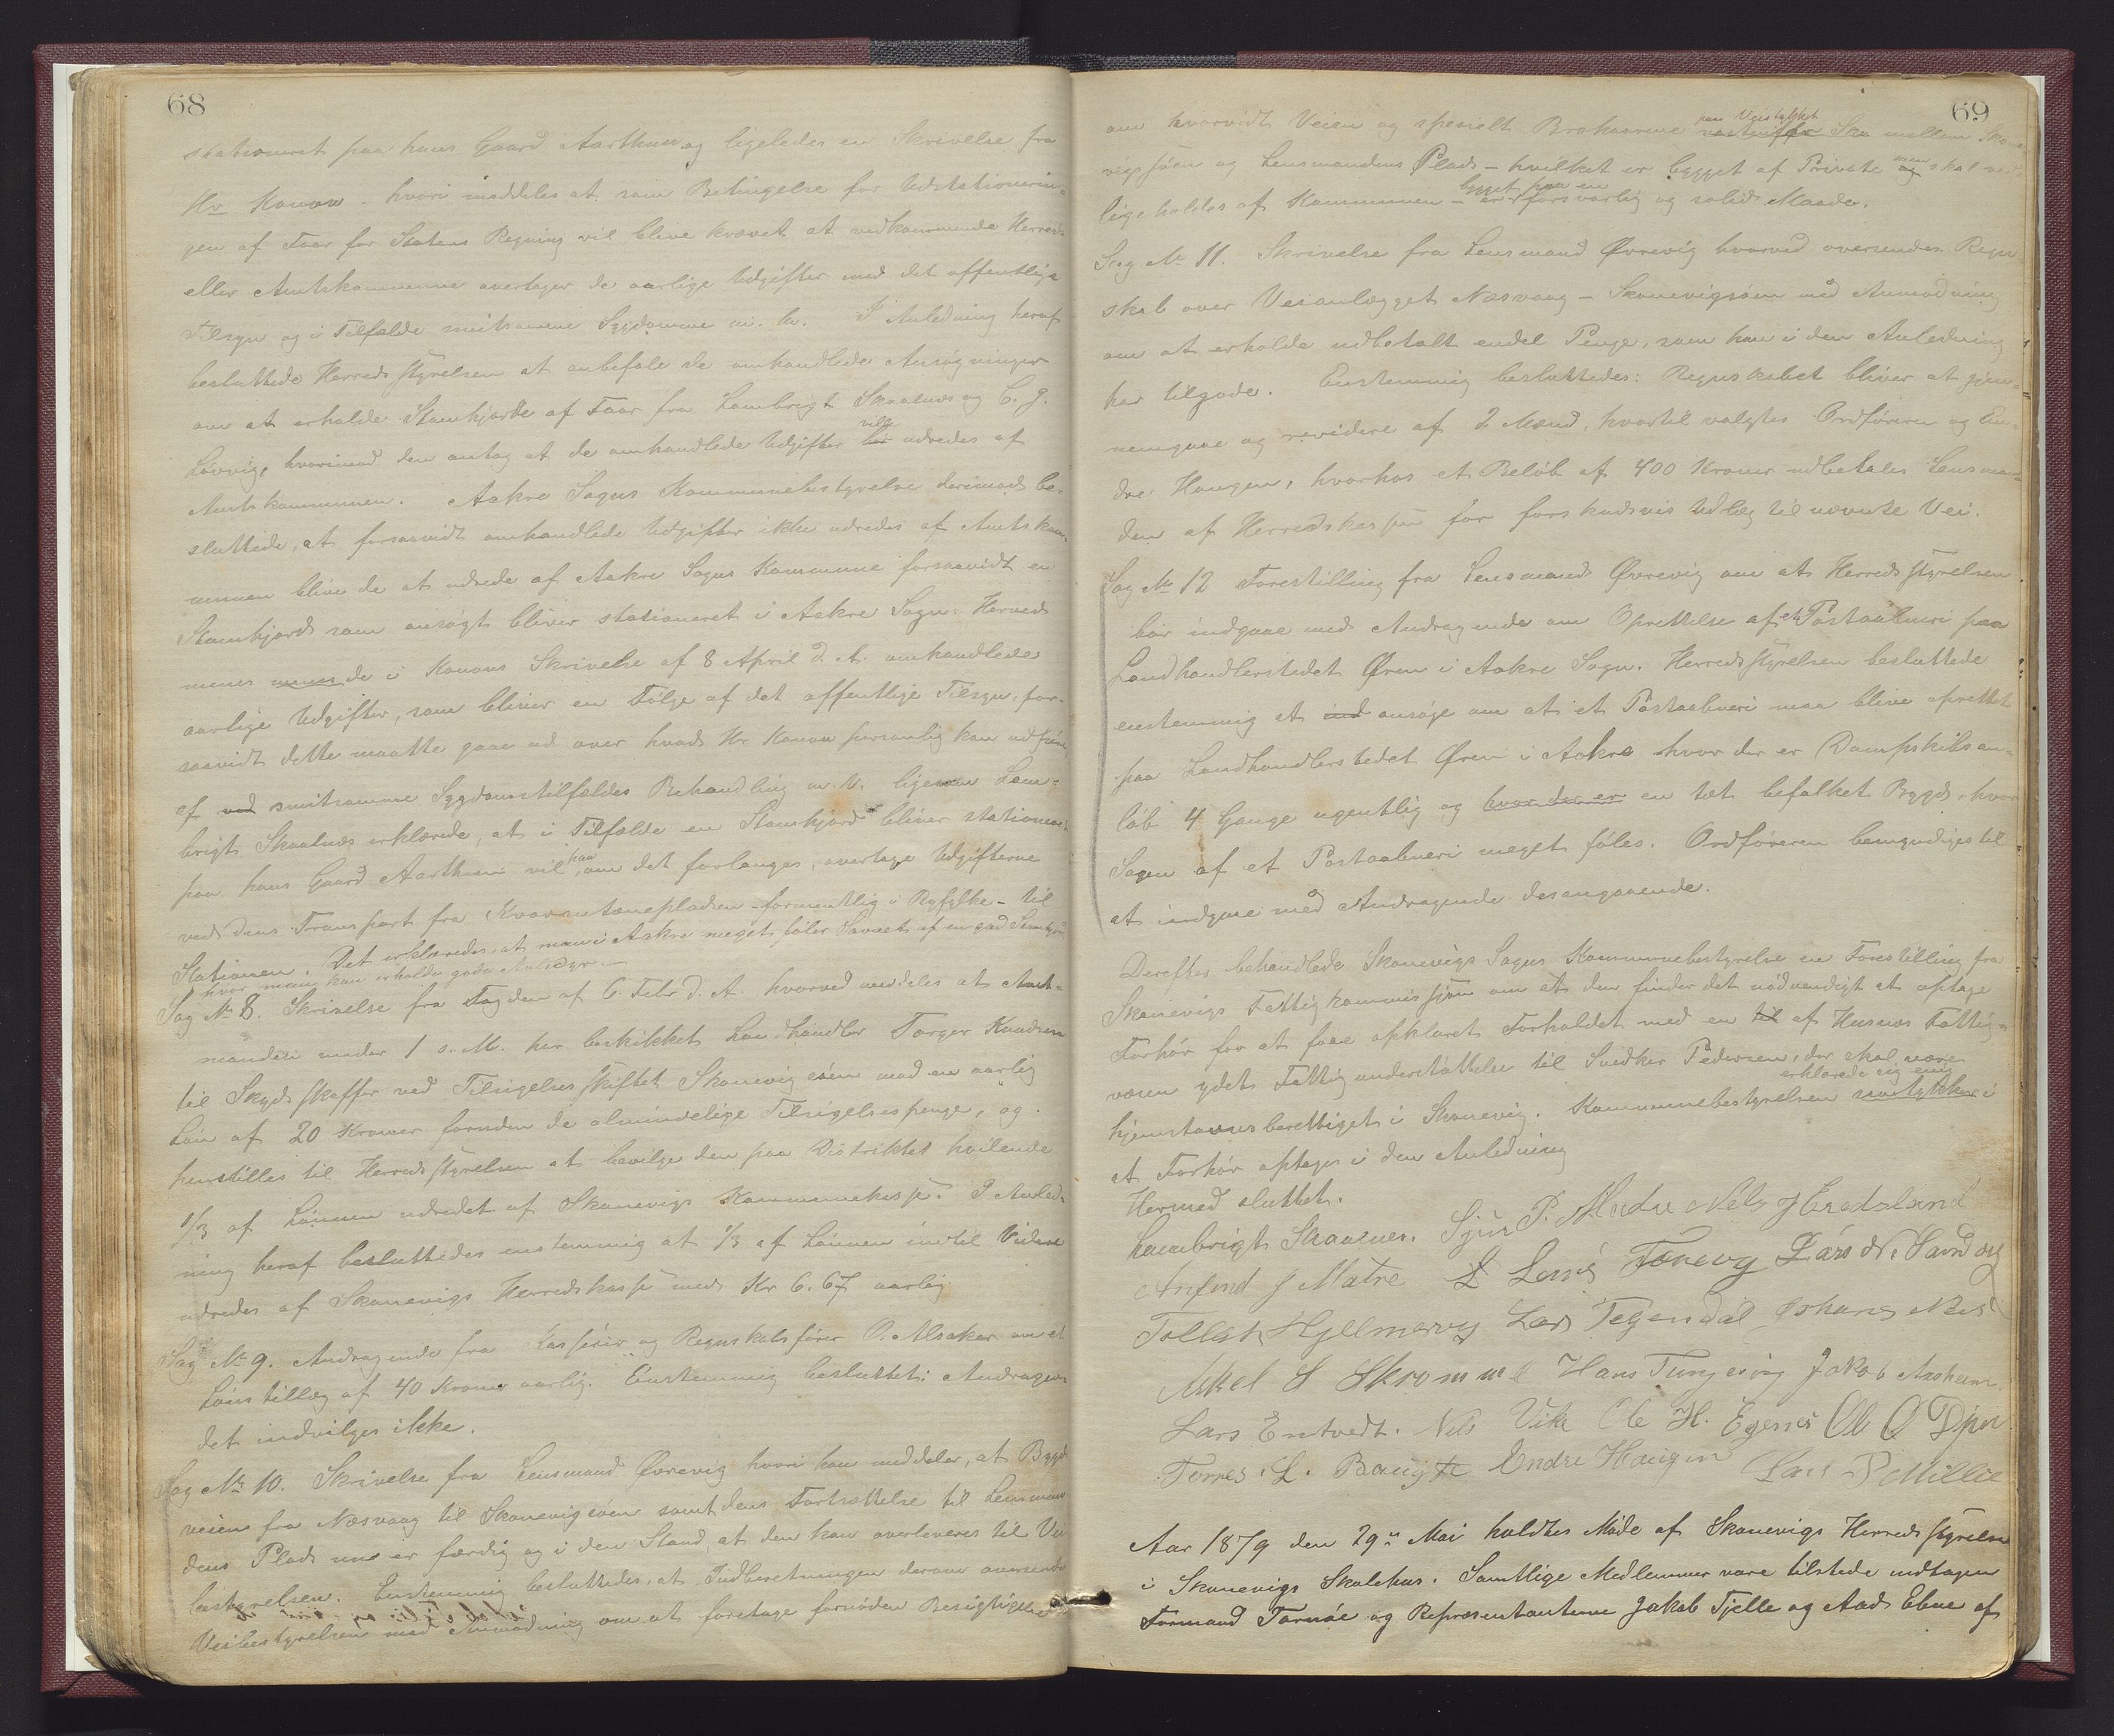 68
stationeret paa hans Gaard Aarthun og ligeledes en Skrivelse fra
Hr Konow. hvori meddeles at som Betingelse for Udstationerin-
gen af Faar for Statens Regning vil blive krævet at vedkommende Herreds-
eller Amtskommune overtager de aarlige Udgifter med det offentlige
Tilsyn og i Tilfælde smitsomme Sygdomme m. v. I Anledning heraf
besluttede Herredsstyrelsen at anbefale de omhandlede Ansøgninger
om at erholde Stamhjorde af Faar fra Lambrigt Skaalnes og C. J.
Løvvig, hvorimod den antog at de omhandlede Udgifter bør ville udredes af
Amtskommunen. Aakre Sogns Kommunebestyrelse derimod be-
sluttede, at forsaavidt omhandlede Udgifter ikke udredes af Amtskom-
munen blive de at udrede af Aakre Sogns Kommune forsaavidt en
Stamhjord som ansøgt bliver stationeret i Aakre Sogn. Herved
menes menes de i Konows Skrivelse af 8 April d. A. omhandlede
aarlige Udgifter, som bliver en Følge af det offentlige Tilsyn, for-
saavidt dette maatte gaae ud over hvad Hr Konow personlig kan udføre
af ved smitsomme Sygdomstilfældes Behandling m. v. ligesom Lam-
brigt Skaalnes erklærede, at i Tilfælde en Stamhjord bliver stationeret
paa hans Gaard Aarthun vil han, om det forlanges, overtage Udgifterne
ved dens Transport fra Kvarantænepladsen - formentlig i Ryfylke - til
Stationen. Det erklæredes, at man i Aakre meget føler Savnet af en god Stamhjord
hvor man kan erholde gode Avlsdyr.
Sag No 8. Skrivelse fra Fogden af 6 Febr d. A. hvorved meddeles at Amt-
manden under 1 s. M. har beskikket Landhandler Torger Knudsen
til Skydsskaffer ved Tilsigelsesskiftet Skonevigsøen mod en aarlig
Løn af 20 Kroner foruden de almindelige Tilsigelsespenge, og
henstilles til Herredsstyrelsen at bevilge den paa Distriktet hvilende
1/3 af Lønnen udredet af Skonevigs Kommunekasse. I Anled-
ning heraf besluttedes enstemmig at 1/3 af Lønnen indtil Videre
udredes af Skonevigs Herredskasse med Kr 6.67 aarlig
Sag No 9. Andragende fra Kasserer og Regnskabsfører O. Alsaker om et
Lønstillæg af 40 Kroner aarlig. Enstemmig besluttet: Andragen-
det indvilges ikke.
Sag No 10. Skrivelse fra Lensmand Øvrevig hvori han meddeler, at Bygde-
veien fra Næsvaag til Skonevigsøen samt dens Fortsættelse til Lensman-
dens Plads nu er færdig og i den Stand, at den kan overleveres til Vei-
bestyrelsen. Enstemmig besluttedes, at Indberetningen derom oversendes
Veibestyrelsen med Anmodning om at foretage fornøden Besigtigelse
69
om hvorvidt Veien og spesielt Brokarrene paa Veistykket
vigsjøen og Lensmandens Plads - hvilket er bygget af Private og men skal ved-
ligeholdes af Kommunen - er bygget paa en forsvarlig og solid Maade.
Sag No 11. Skrivelse fra Lensmand Øvrevig hvorved oversendes Regn-
skab over Veianlægget Næsvaag - Skonevigsøen med Anmodning
om at erholde udbetalt endel Penge, som han i den Anledning
har tilgode. Enstemmig besluttedes: Regnskabet bliver at gjen-
nemgaae og revidere af 2 Mænd, hvortil valgtes Ordføreren og En-
dre Haugen, hvorhos et Beløb af 400 Kroner udbetales Lensman-
den af Herredskassen for forskudsvis Udlæg til nævnte Vei.
Sag No 12 Forestilling fra Lensmand Øvrevig om at Herredsstyrelsen
bør indgaae med Andragende om Oprettelse af et Postaabneri paa
Landhandlerstedet Øren i Aakre Sogn. Herredsstyrelsen besluttede
enstemmig at ind ansøge om at et Postaabneri maa blive oprettet
paa Landhandlerstedet Øren i Aakre hvor der er Dampskibsan-
løb 4 Gange ugentlig og hvor der er en tæt befolket Bygd, hvor
Savn af et Postaabneri meget føles. Ordføreren bemyndiges til
at indgaae med Andragende desangaaende.
Derefter behandlede Skonevigs Sogns Kommunebestyrelse en Forestilling fra
Skonevigs Fattigkommission om at den finder det nødvendigt at optage
Forhør for at faae opklaret Forholdet med en til af Husnes Fattig-
væsen ydet Fattigunderstøttelse til Snedker Pedersen, der skal være
hjemstavnsberettiget i Skonevig. Kommunebestyrelsen samtykker erklærede sig enig i
at Forhør optages i den Anledning
Hermed sluttet.
Lambrigt Skaalnes. Sjur P. Milde Nels J Eredsland
Anfind J Matre L Larsĕn Tonevg Lars N. Sandvig
Tollak Hjelmervg Lars Tegendal Johans Næs
Mikel S Skromme Hans Tungesvig Jakob Aasheim
Lars Emtvedt. Nels Vika Ole H. Egenes Ole O
Torres. L. Baugste Endre Haugen Lars P Millie
Aar 1879 den 29de Mai holdtes Møde af Skonevigs Herredsstyrelse
i Skonevigs Skolehus. Samtlige Medlemmer vare tilstede undtagen
Formand Tornøe og Repræsentanterne Jakob Fjelle og Aad Ebne af